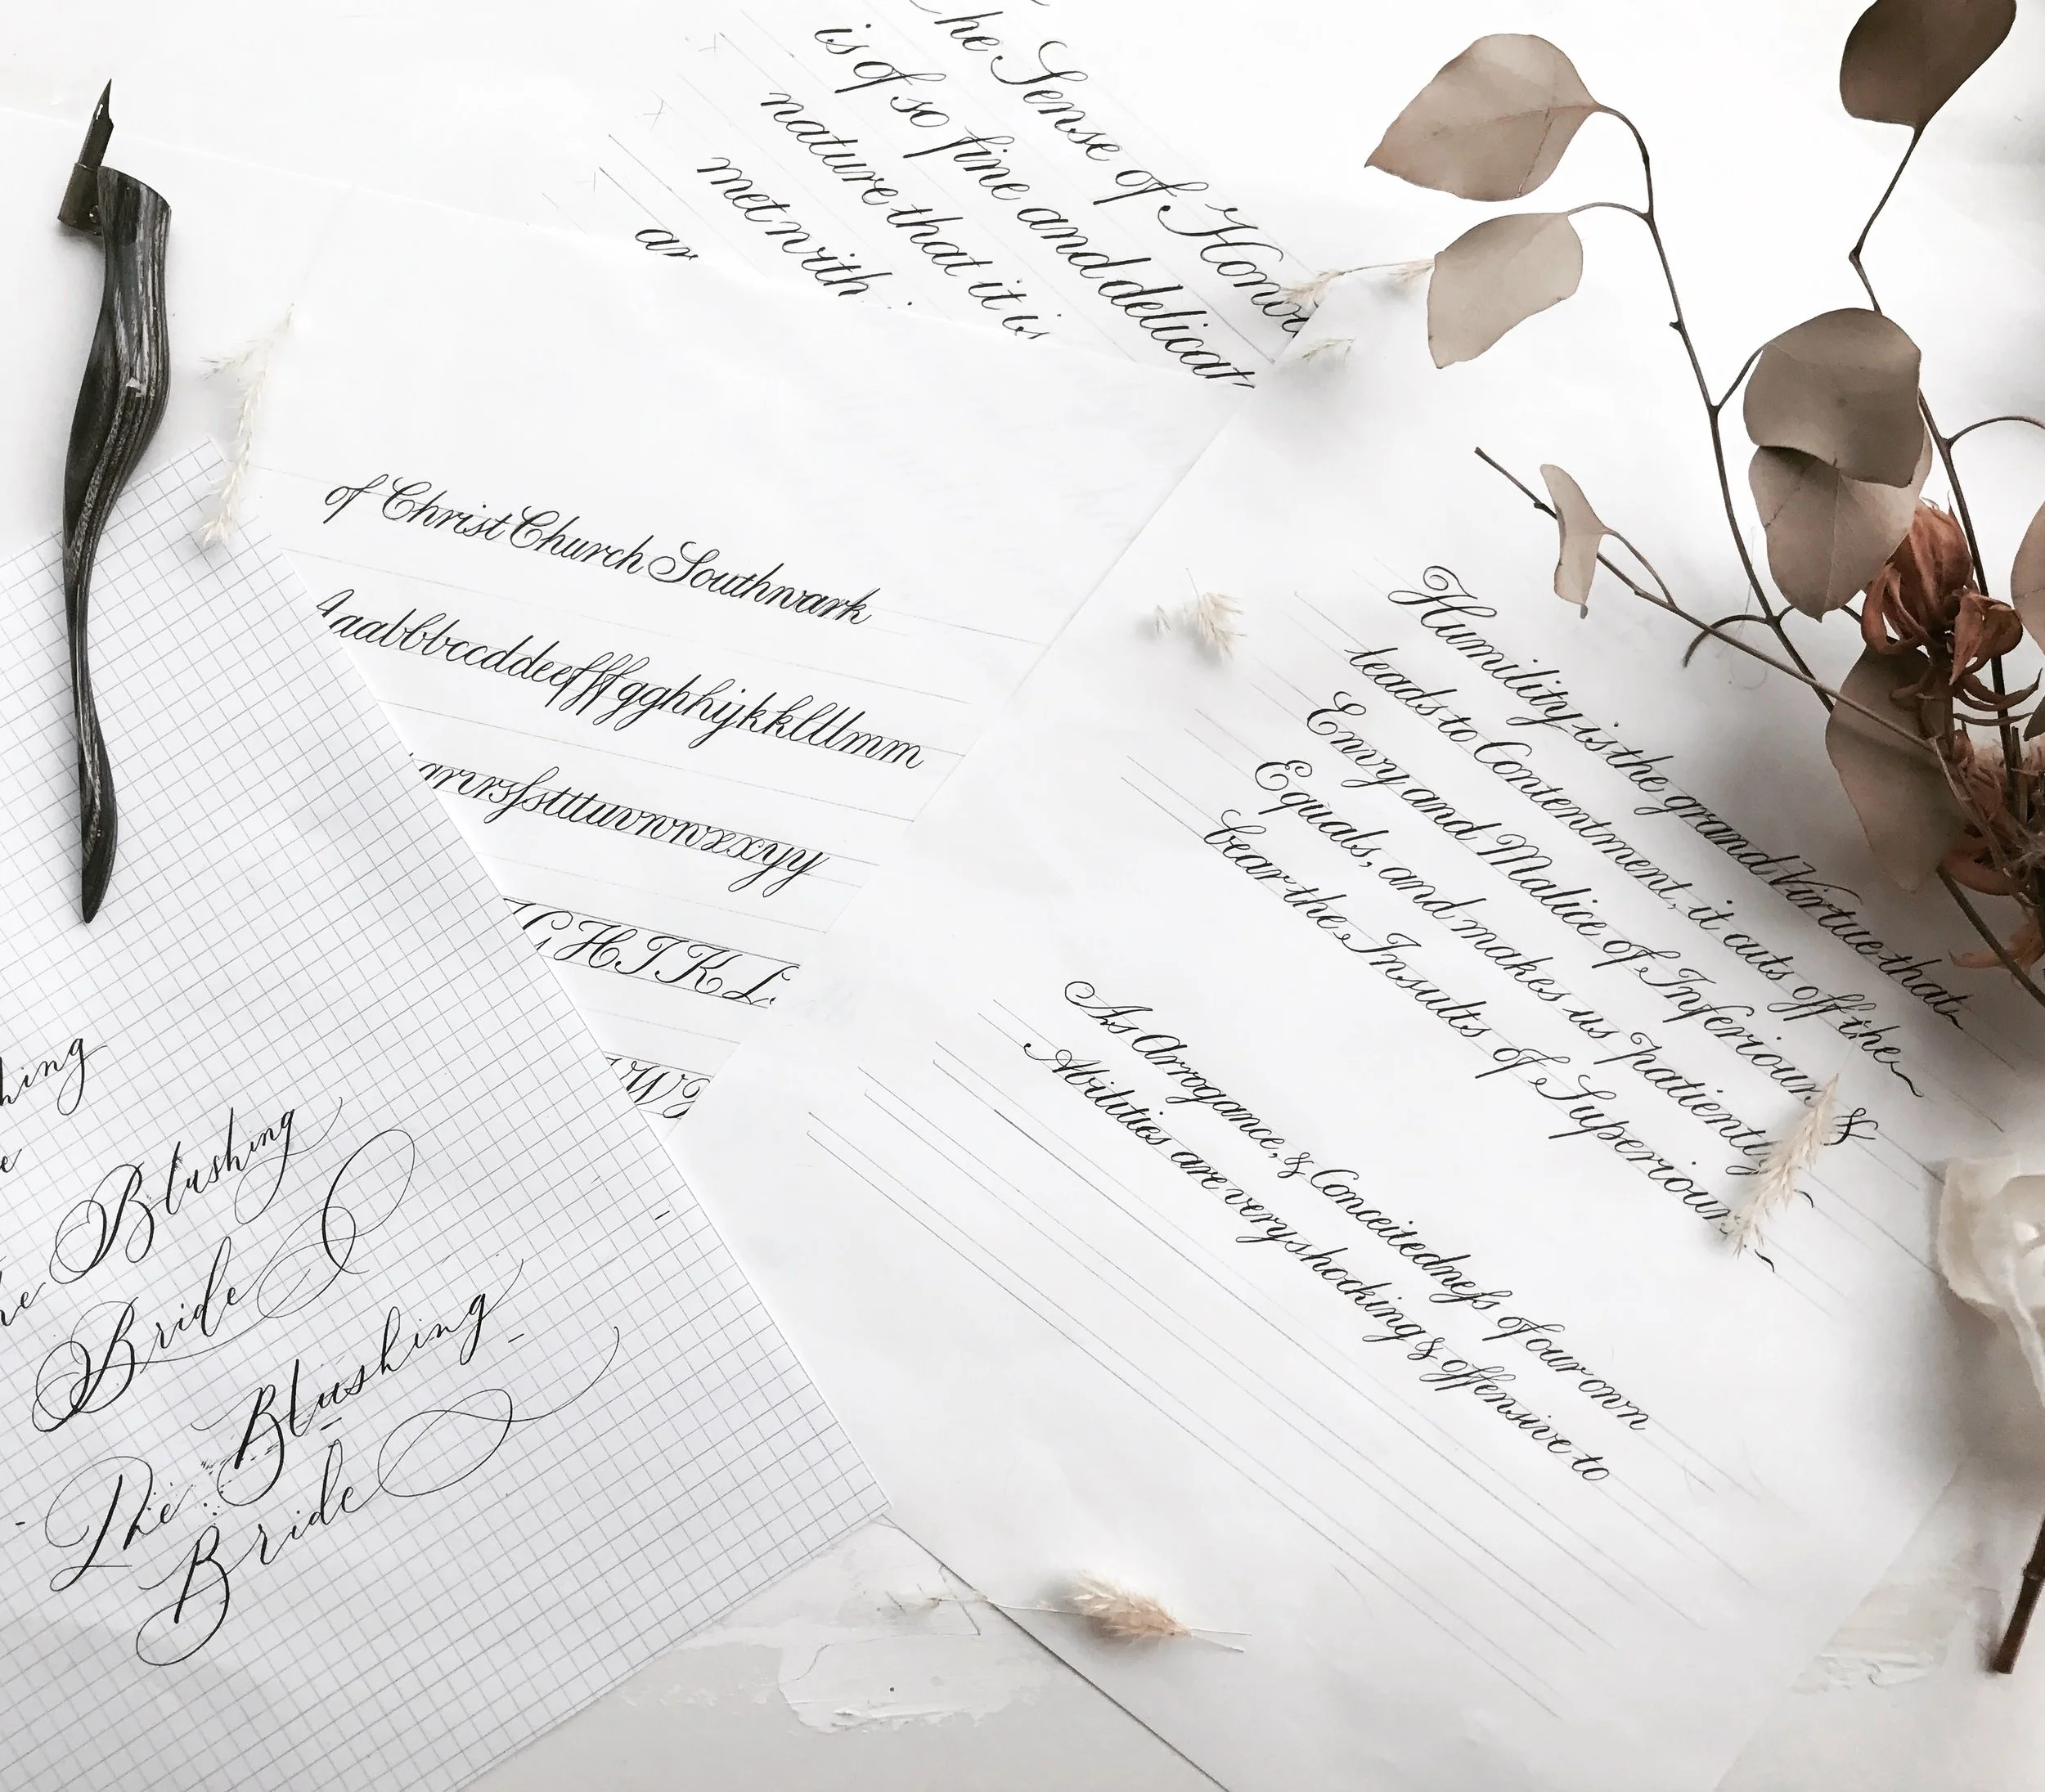 he Sense of Honou
is of so fine and delicat
nature that it is
met with
of Christ Church Southwark
aabbbccddeeffffgghhijkkklllmm
rrrsſstttuvwwxxxyy
G H I K L
W
Humility is the grand Virtue that
leads to Contentment, it cuts off the
Envy and Malice of Inferiours &
Equals, and makes us patiently
bear the Insults of Superiours.
As Arrogance, & Conceitedneſs of our own
Abilities are very shocking & offensive to
hing
Blushing
Bride
The Blushing
Bride